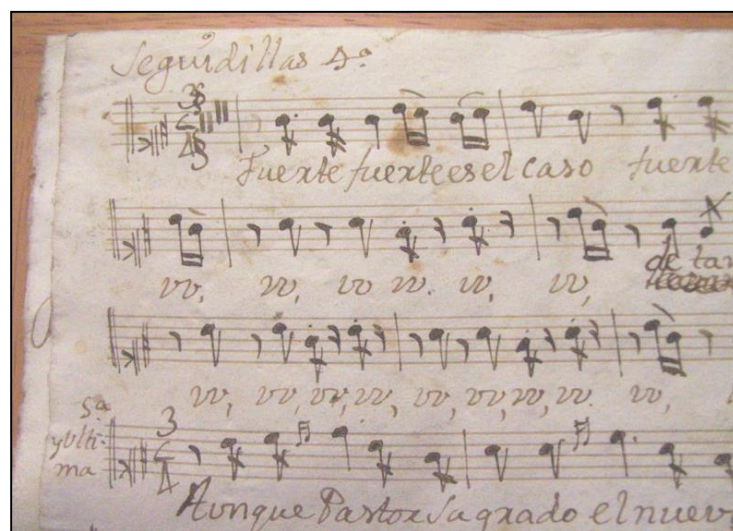 Seguidillas 4ª
Fuerte fuerte es el caso fuerte
vv, vv, vv vv. vv, vv,
de tan
vv, vv, vv, vv, vv, vv, vv, vv. vv,
5ª
y Vlti-
ma
3
4
Aunque Pastor Sagrado el nuev